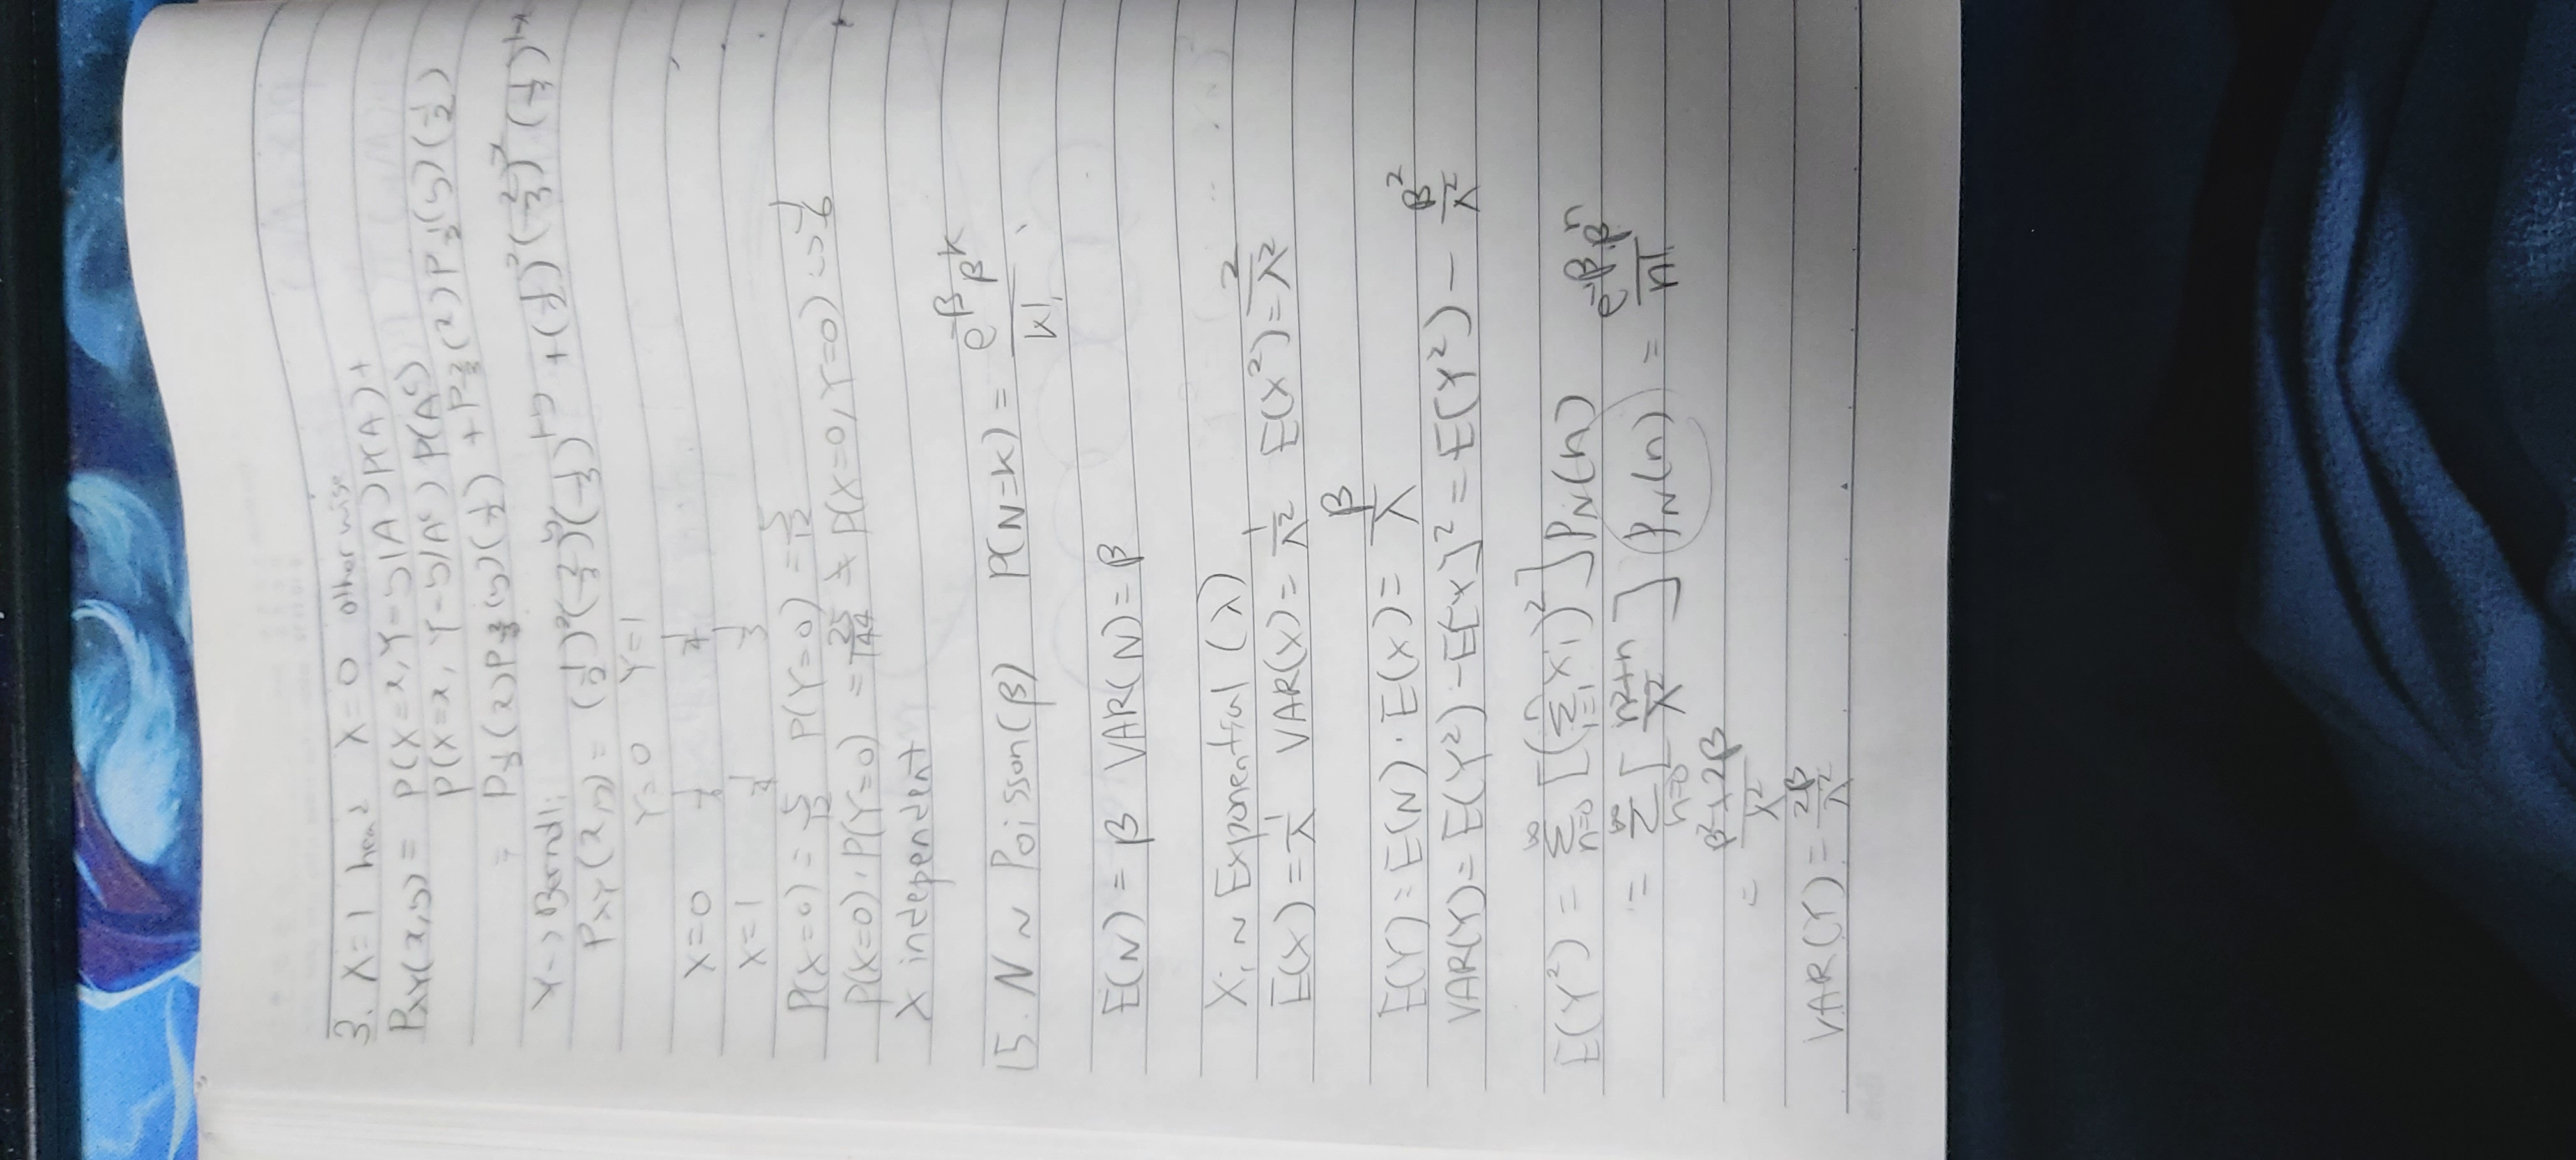 3. X=1 head X=0 otherwise
P_XY(x,y) = P(X=x, Y=y|A)P(A)+
P(X=x, Y=y|A^c) P(A^c)
= P_½(x)P_⅔(y)(½) + P_⅔(x)P_½(y)(½)
Y→Bernoulli
P_XY(x,y) = (1/2)²(2/3)^y(1/3)^(1-y) + (1/2)²(2/3)^x(1/3)^(1-x)
Y=0 Y=1
X=0 1/6 1/4
X=1 1/4 1/3
P(X=0) = 5/12 P(Y=0) = 5/12
P(X=0)·P(Y=0) = 25/144 ≠ P(X=0,Y=0) => 1/6
X independent
15. N ~ Poisson(β) P(N=k) = e^-β β^k / k!
E(N) = β VAR(N) = β
X_i ~ Exponential (λ)
E(X) = 1/λ VAR(X) = 1/λ² E(X²) = 2/λ²
E(Y) = E(N)·E(X) = β/λ
VAR(Y) = E(Y²) - E[Y]² = E(Y²) - β²/λ²
E(Y²) = Σ_{n=0}^∞ [(Σ_{i=1}^n X_i)²] P_N(n)
= Σ_{n=0}^∞ [(n²+n)/λ²] P_N(n) = e^-β·β^n / n!
= (β²+2β)/λ²
VAR(Y) = 2β/λ²